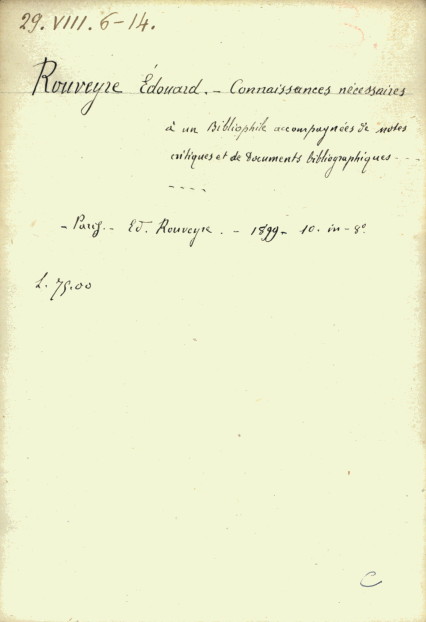 29. VIII. 6-14.
Rouveyre Édouard. - Connaissances nécessaires
à un Bibliophile accompagnées de notes
critiques et de documents bibliographiques - - -
- - - -
- Paris. - Ed. Rouveyre. - 1899 - 10. in-8º
L. 75.00
C